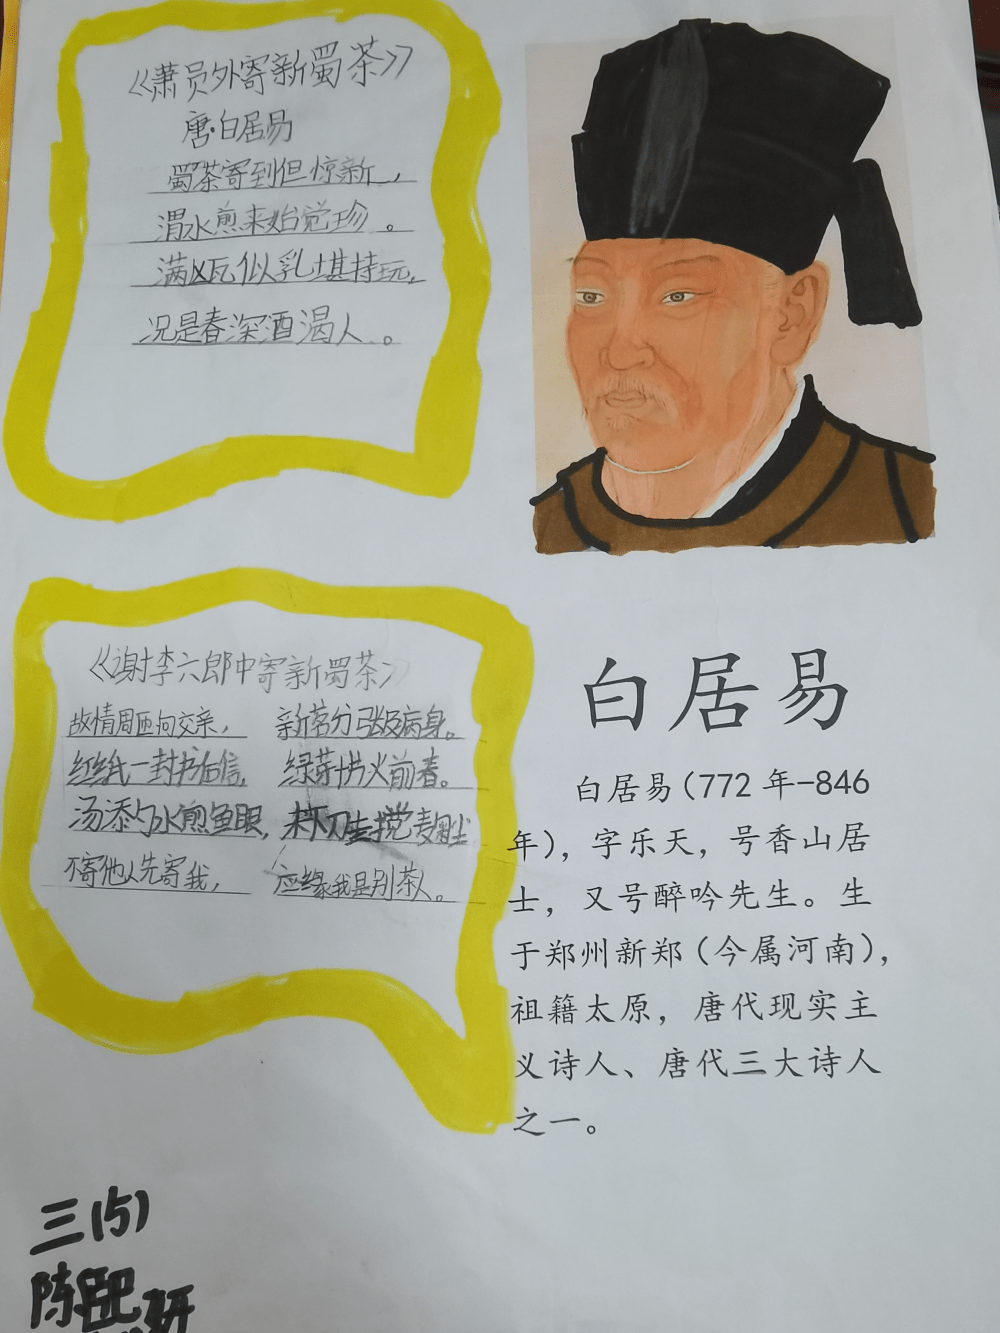 《萧员外寄新蜀茶》
唐·白居易
蜀茶寄到但惊新，
渭水煎来始觉珍。
满瓯似乳堪持玩，
况是春深酒渴人。
《谢李六郎中寄新蜀茶》
故情周匝向交亲， 新茗分张及病身。
红纸一封书后信， 绿芽十片火前春。
汤添勺水煎鱼眼， 末下刀圭搅麦尘
不寄他人先寄我， 应缘我是别茶人。
白居易
白居易（772 年-846
年），字乐天，号香山居
士，又号醉吟先生。生
于郑州新郑（今属河南），
祖籍太原，唐代现实主
义诗人、唐代三大诗人
之一。
三(5)
陈熙妍